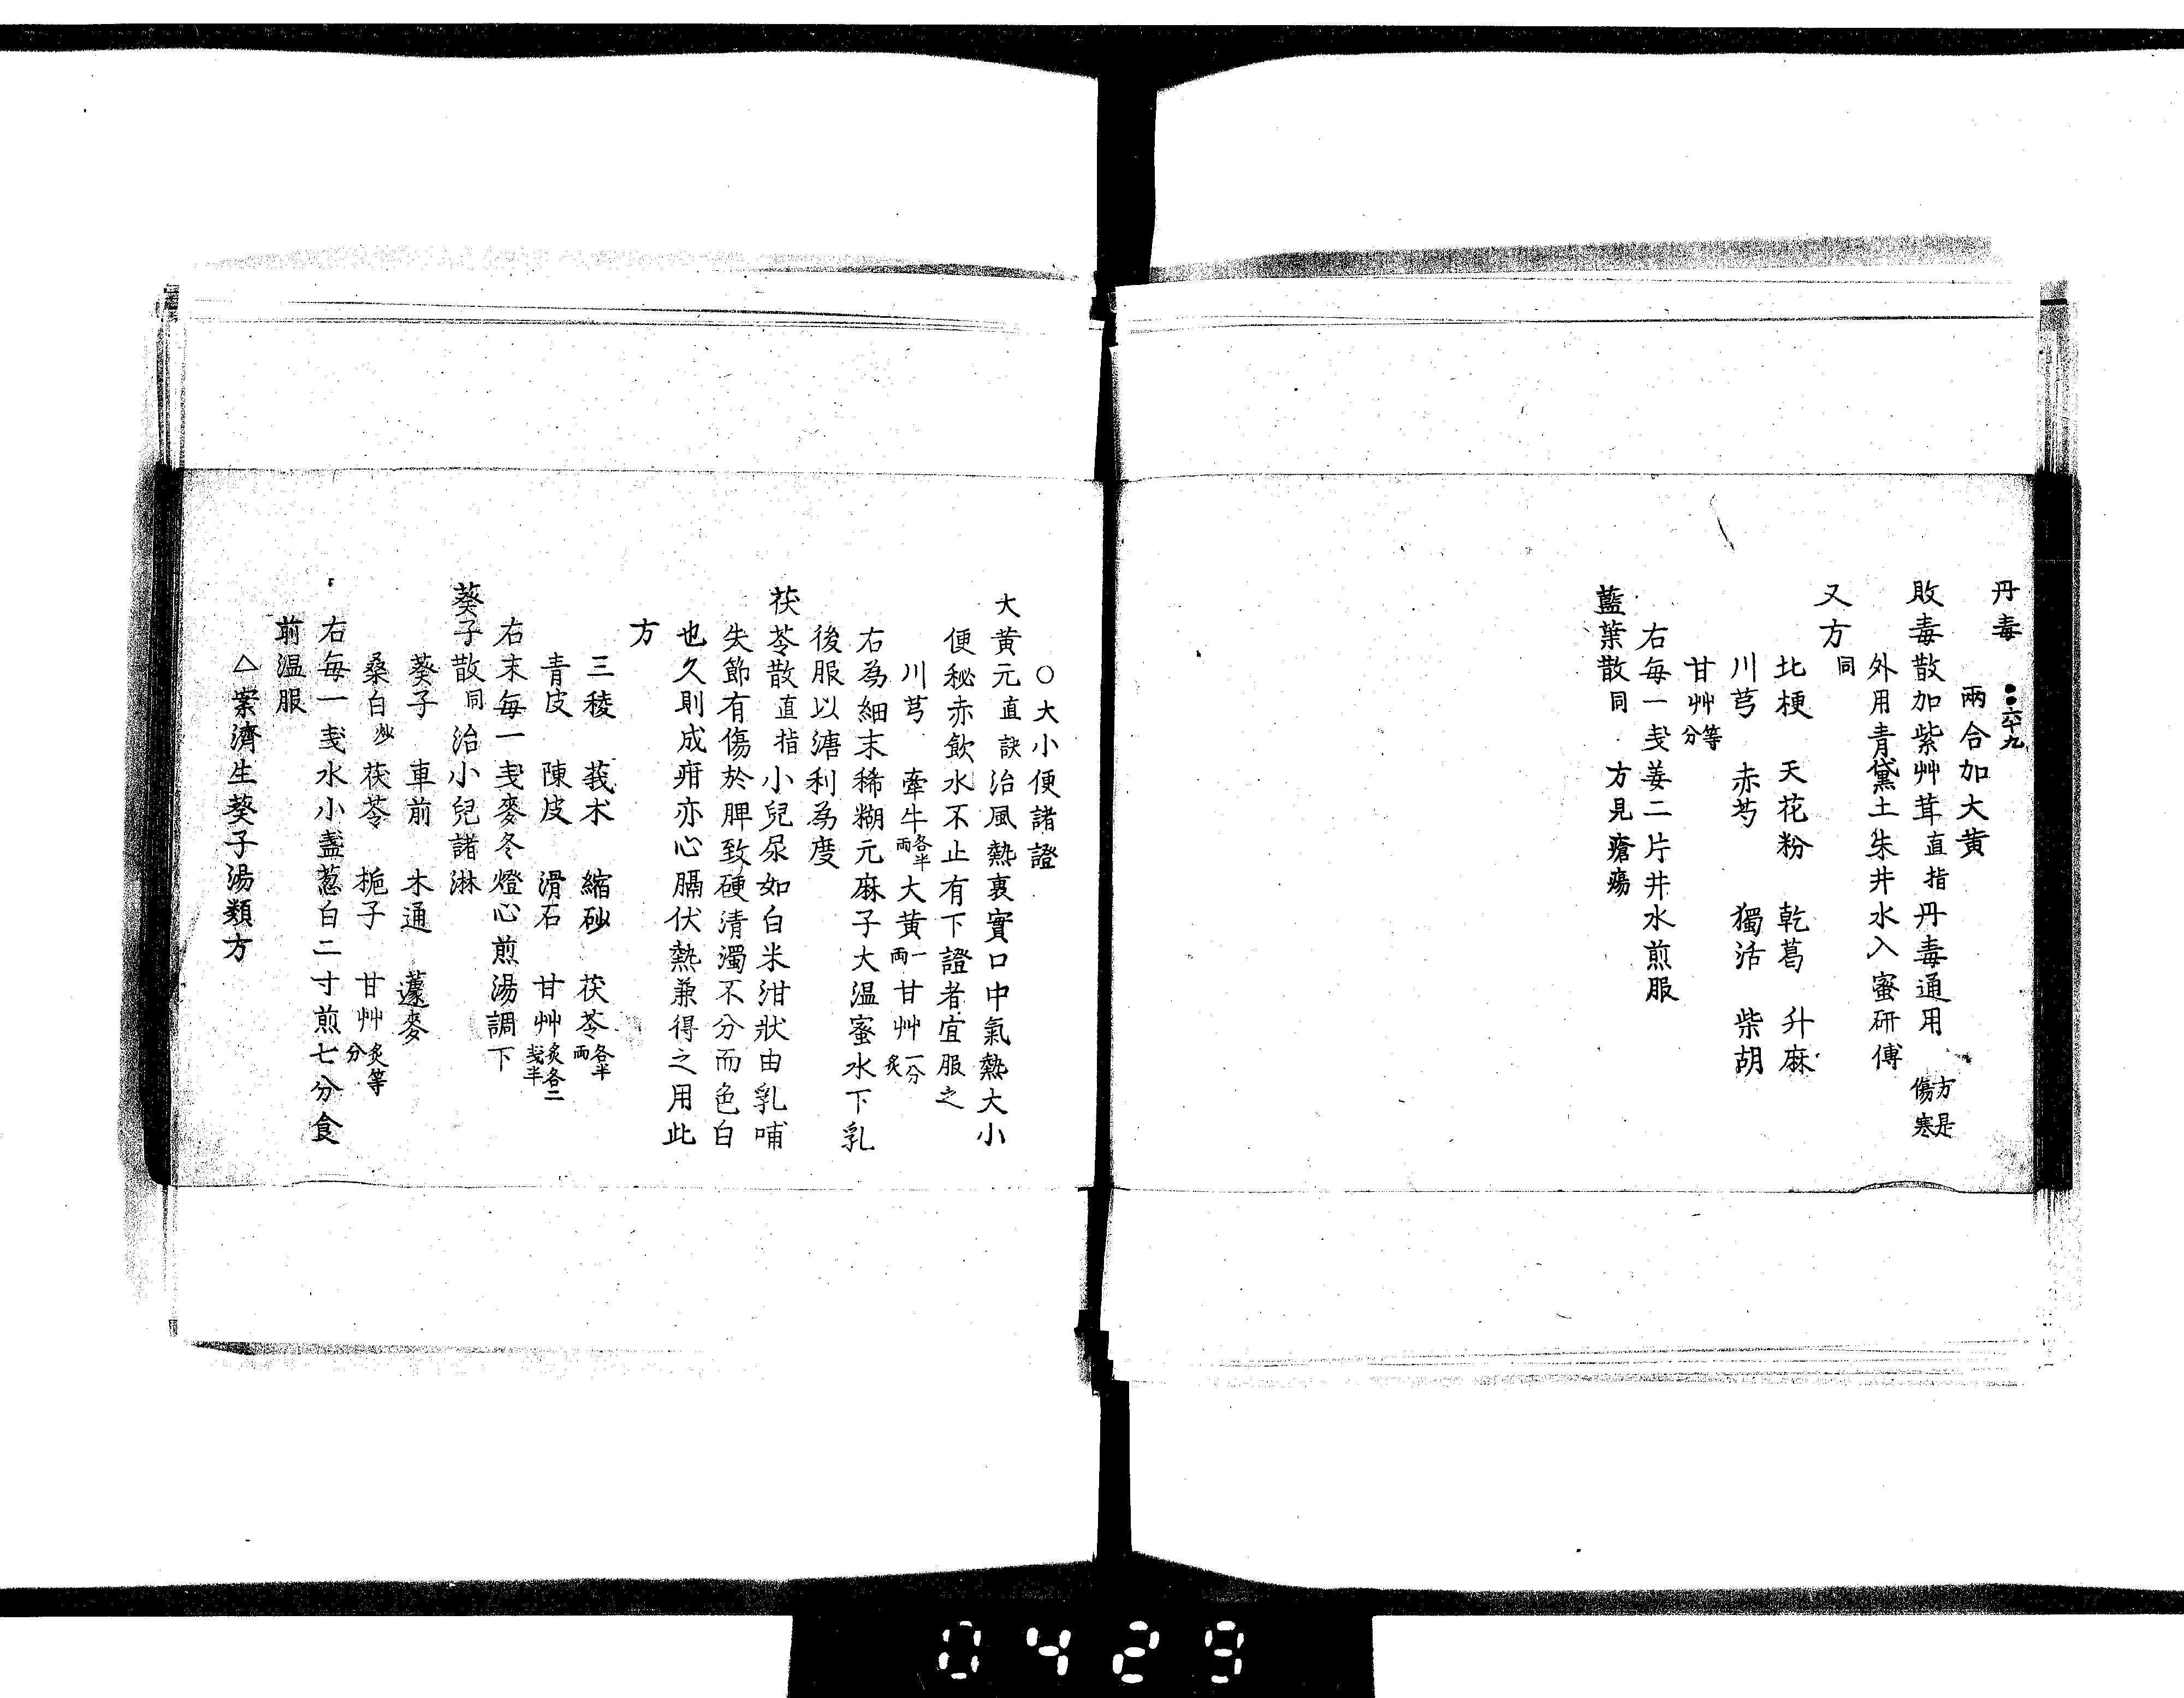 丹毒　●●六十九
兩合加大黄
敗毒散加紫艸茸直指丹毒通用方是傷寒
外用青黛土朱井水入蜜研傅
又方同
北梗　天花粉　乾葛　升麻
川芎　赤芍　獨活　柴胡
甘艸等分
右毎一戔姜二片井水煎服
藍葉散同　方見瘡瘍
○大小便諸證
大黄元直訣治風熱裏實口中氣熱大小
便秘赤飲水不止有下證者宜服之
川芎　牽牛各半両大黄一両甘艸一分炙
右為細末稀糊元麻子大温蜜水下乳
後服以溏利為度
茯苓散直指小兒尿如白米泔狀由乳哺
失節有傷於脾致硬清濁不分而色白
也久則成疳亦心膈伏熱兼得之用此
方
三稜　莪朮　縮砂　茯苓各半両
青皮　陳皮　滑石　甘艸炙各二戔半
右末毎一戔麥冬燈心煎湯調下
葵子散同治小兒諸淋
葵子　車前　木通　蘧麥
桑白炒　茯苓　梔子　甘艸炙等分
右毎一戔水小盞葱白二寸煎七分食
前温服
△案濟生葵子湯類方
0429